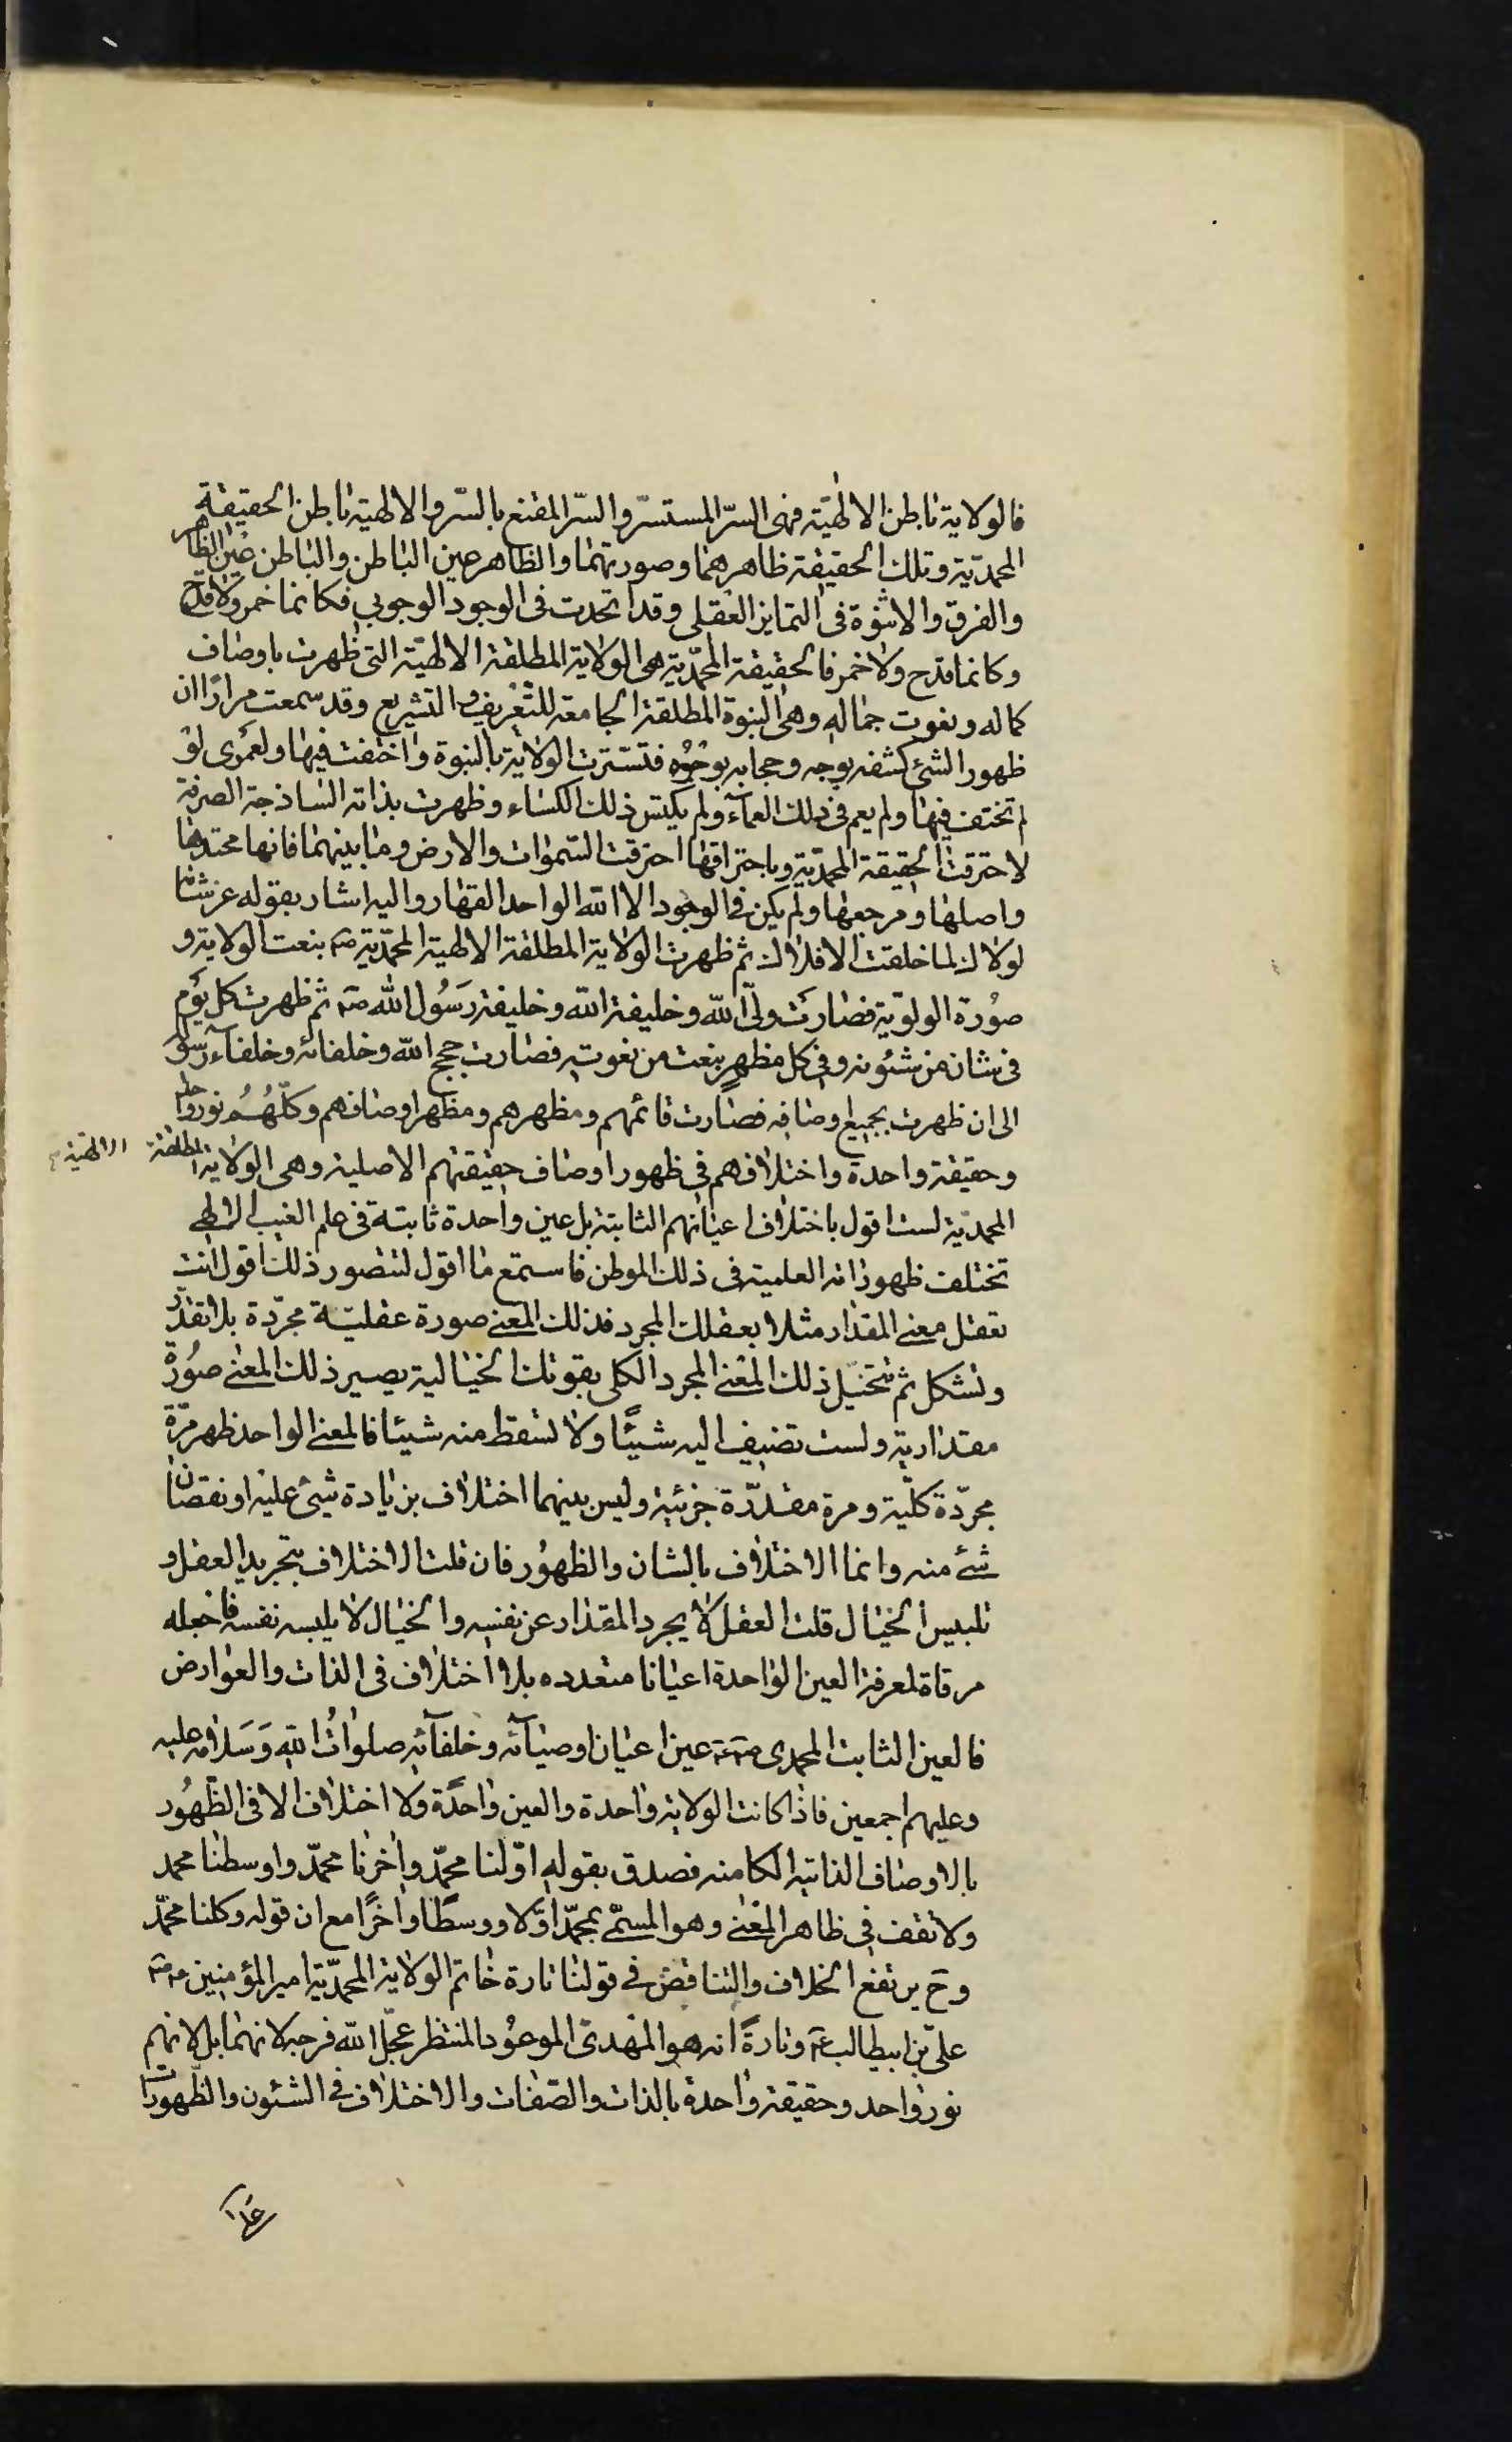 فالولاية باطن الالٰهيّة فهى السرّ المستسرّ والسرّ المقنع بالسّر والالهيّة باطن الحقيقة
المحمديّة وتلك الحقيقة ظاهرهما وصورتهما والظاهر عين الباطن والباطن عين الظاهر
والفرق والاثنوة فى التمايز العقلى وقد اتحدت فى الوجود الوجوبي فكانما خمر ولا قدح
وكانما قدح ولا خمر فالحقيقة المحمّدية هى الولاية المطلقة الالهيّة التى ظهرت باوصاف
كماله ونعوت جماله وهى النبوة المطلقة الجامعة للتعريف والتشريع وقد سمعت مرارًا ان
ظهور الشئ كشفه بوجه وحجابه بوجوه فتسترت الولاية بالنبوة واختفت فيها ولعمرى لو
لم تختف فيها ولم يعم فى ذلك العمآء ولم يكتس ذلك الكساء وظهرت بذاته الساذجة الصرفة
لاحترقت الحقيقة المحمديّة وباحتراقها احترقت السّموات والارض وما بينهما فانها محتدها
واصلها ومرجعها ولم يكن فى الوجود الا الله الواحد القهار واليه اشار بقوله عز شانه
لولاك لما خلقت الافلاك ثم ظهرت الولاية المطلقة الالهية المحمّدية صم بنعت الولاية و
صورة الولويّة فصارت ولىّ الله وخليفة الله وخليفة رسول الله صم ثم ظهرت كل يوم
فى شان من شئونه وفى كل مظهر بنعت من نعوته فصارت حجج الله وخلفائه وخلفاء رسول
الى ان ظهرت بجميع اوصافه فصارت قائمهم ومظهرهم ومظهر اوصافهم وكلّهم نور واحد
وحقيقة واحدة واختلافهم فى ظهور اوصاف حقيقتهم الاصلية وهى الولاية المطلقة الالهيّة
المحمديّة لست اقول باختلاف اعيانهم الثابتة بل عين واحدة ثابتة فى علم الغيب الالهى
تختلف ظهوراته العلمية فى ذلك الموطن فاستمع ما اقول لتتصور ذلك اقول انت
تعقل معنى المقدار مثلا بعقلك المجرد فذلك المعنى صورة عقليّة مجرّدة بلا تقدّر
وتشكل ثم تتخيّل ذلك المعنى المجرد الكلى بقوتك الخيالية يصير ذلك المعنى صورة
مقدارية ولست تضيف اليه شيئًا ولا تسقط منه شيئا فالمعنى الواحد ظهر مرّة
مجرّدة كلّية ومرة مقدّرة جزئية وليس بينهما اختلاف بزيادة شيئ عليه او نقصان
شئ منه وانما الاختلاف بالشان والظهور فان قلت الاختلاف بتجريد العقل و
تلبيس الخيال قلت العقل لا يجرد المقدار عن نفسه والخيال لا يلبسه نفسه فاجعله
مرقاة لمعرفة العين الواحدة اعيانا متعدده بلا اختلاف فى الذات والعوارض
فالعين الثابت المحمدى صم عين اعيان اوصيآئه وخلفآئه صلوات الله وسلامه عليه
وعليهم اجمعين فاذا كانت الولاية واحدة والعين واحدة ولا اختلاف الا فى الظّهور
بالاوصاف الذاتية الكامنه فصدق بقوله اوّلنا محمّد واخرنا محمّد واوسطنا محمد
ولا تقف فى ظاهر المعنى وهو المسمّى بمحمّد اوّلا ووسطا واخرًا مع ان قوله وكلنا محمّد
وح يرتفع الخلاف والتناقض فى قولنا تارة خاتم الولاية المحمّدية امير المؤمنين
علىّ بن ابيطالب عم وتارةً انه هو المهدى الموعود المنتظر عجّل الله فرجه لانهما بل لانهم
نور واحد وحقيقة واحدة بالذات والصّفات والاختلاف فى الشئون والظّهورات